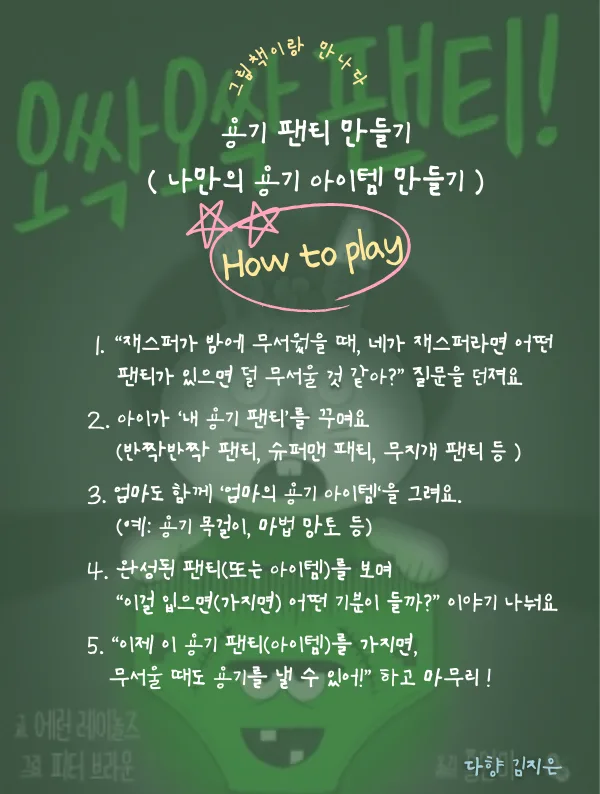 오싹오싹 팬티!
그림책이랑 만나다
용기 팬티 만들기
( 나만의 용기 아이템 만들기 )
How to play
1. “재스퍼가 밤에 무서웠을 때, 네가 재스퍼라면 어떤
팬티가 있으면 덜 무서울 것 같아?” 질문을 던져요
2. 아이가 ‘내 용기 팬티’를 꾸며요
(반짝반짝 팬티, 슈퍼맨 패티, 무지개 팬티 등 )
3. 엄마도 함께 ‘엄마의 용기 아이템‘을 그려요.
(예: 용기 목걸이, 마법 망토 등)
4. 완성된 팬티(또는 아이템)를 보며
“이걸 입으면(가지면) 어떤 기분이 들까?” 이야기 나눠요
5. “이제 이 용기 팬티(아이템)를 가지면,
무서울 때도 용기를 낼 수 있어!” 하고 마무리 !
글 에린 레이놀즈
그림 피터 브라운
다향 김지은